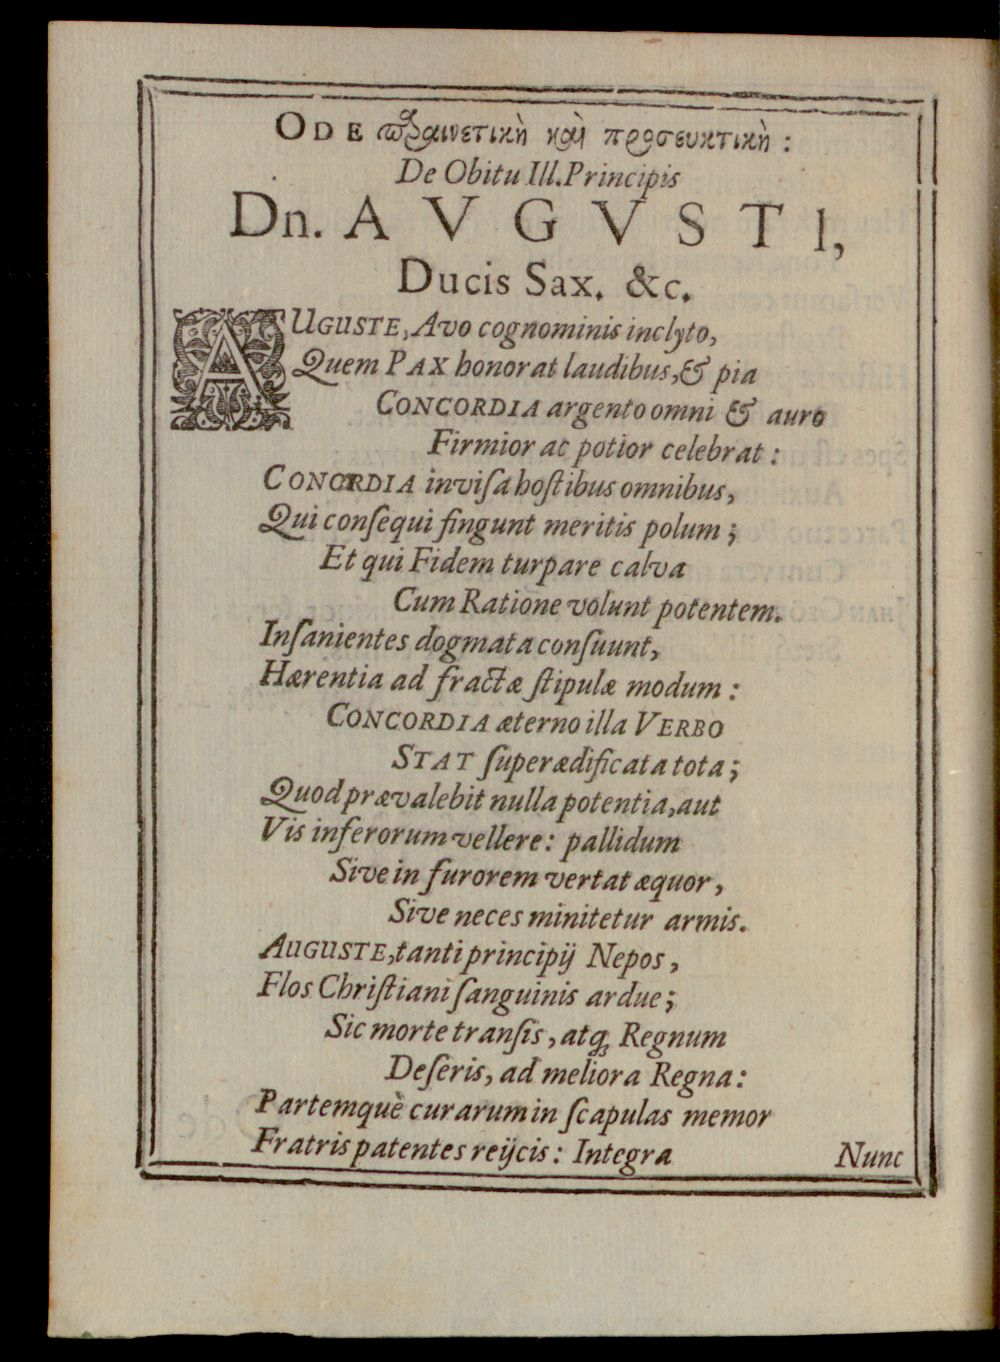 ODE παραινετικὴ καὶ προσευκτικὴ:
De Obitu Ill. Principis
Dn. AVGVSTI,
Ducis Sax. &c.
AUGUSTE, Avo cognominis inclyto,
Quem PAX honorat laudibus, & pia
CONCORDIA argento omni & auro
Firmior ac potior celebrat:
CONCORDIA invisa hostibus omnibus,
Qui consequi fingunt meritis polum;
Et qui Fidem turpare calva
Cum Ratione volunt potentem.
Insanientes dogmata consuunt,
Hærentia ad fractæ stipulæ modum:
CONCORDIA æterno illa VERBO
STAT superædificata tota;
Quod prævalebit nulla potentia, aut
Vis inferorum vellere: pallidum
Sive in furorem vertat æquor,
Sive neces minitetur armis.
AUGUSTE, tanti principij Nepos,
Flos Christiani sanguinis ardue;
Sic morte transis, atq; Regnum
Deseris, ad meliora Regna:
Partemquè curarum in scapulas memor
Fratris patentes reijcis: Integra
Nunc